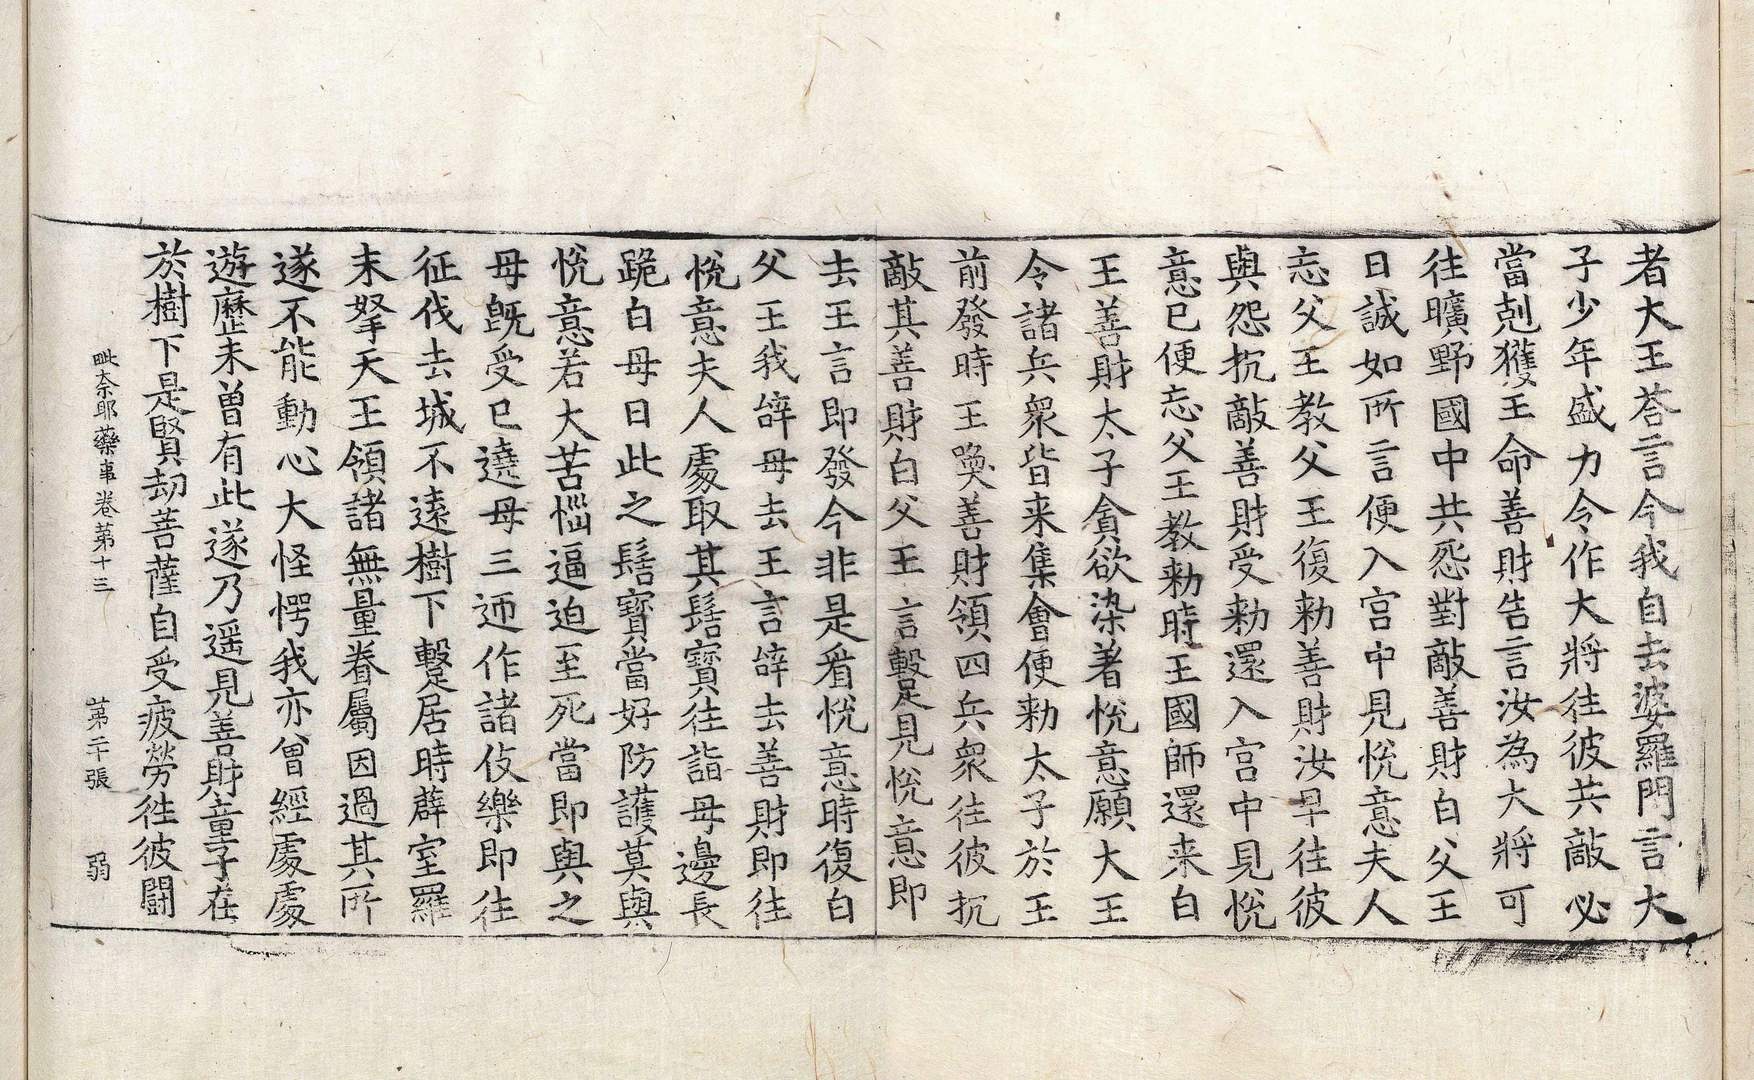 者大王荅言今我自去婆羅門言大
子少年盛力令作大將往彼共敵必
當剋獲王命善財告言汝為大將可
往曠野國中共怨對敵善財白父王
曰誠如所言便入宫中見悅意夫人
忘父王教父王復勑善財汝早往彼
與怨抗敵善財受勑還入宫中見悅
意已便忘父王教勑時王國師還来白
王善財太子貪欲染著悅意願大王
令諸兵衆皆来集會便勑太子於王
前發時王喚善財領四兵衆往彼抗
敵其善財白父王言蹔見悅意即
去王言即發今非是看悅意時復白
父王我辝母去王言辝去善財即往
悅意夫人處取其髻寶往詣母邊長
跪白母曰此之髻寶當好防護莫與
悅意若大苦惱逼迫至死當即與之
母旣受已遶母三迊作諸伎樂即往
征伐去城不遠樹下蹔居時薜室羅
末拏天王領諸無量眷屬因過其所
遂不能動心大怪愕我亦曾經處處
遊歷未曽有此遂乃遥見善財童子在
於樹下是賢劫菩薩自受疲勞往彼鬪
毗奈耶藥事卷苐十三 苐二十張 弱